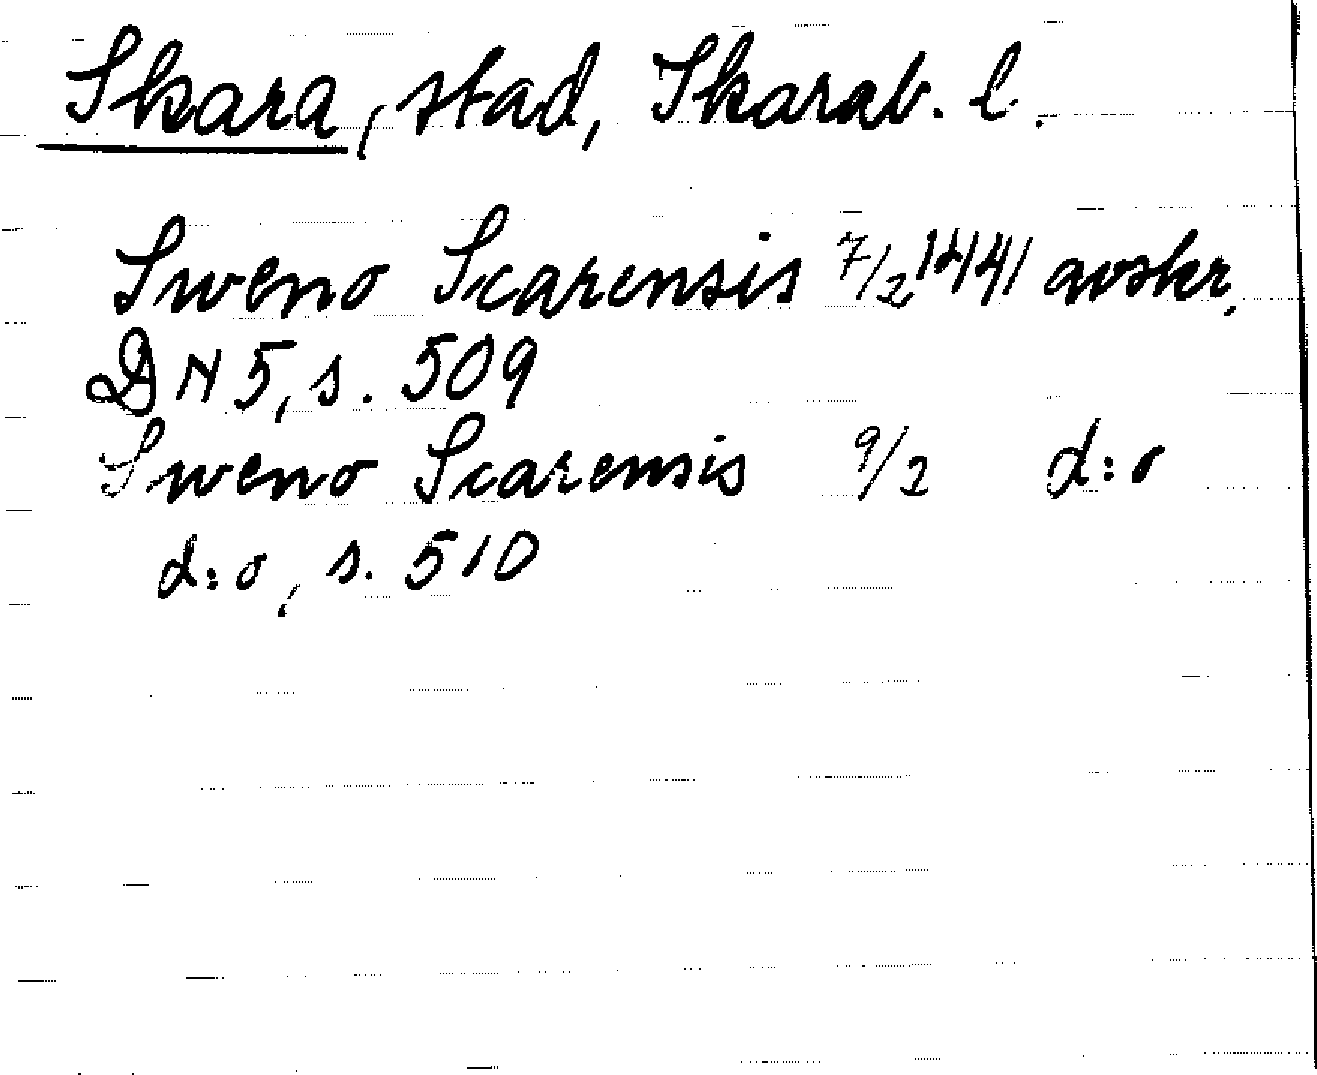 Skara, stad, Skarab. l.
Sweno Scarensis 7/2 1441 avskr.
DN 5, s. 509
Sweno Scarensis 9/2 d:o
d:o, s. 510